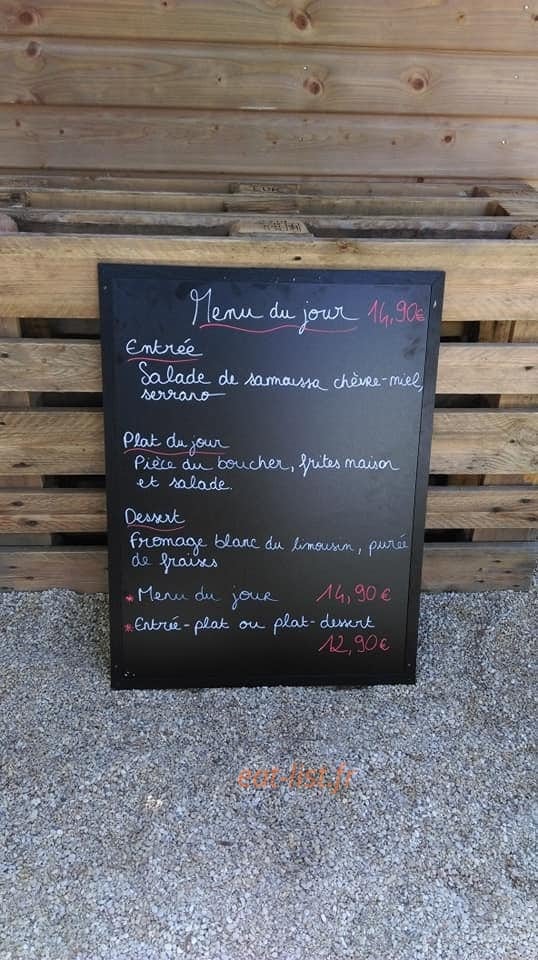 Menu du jour 14,90€
Entrée
Salade de samoussa chèvre-miel,
serrano
Plat du jour
Pièce du boucher, frites maison
et salade.
Dessert
Fromage blanc du limousin, purée
de fraises
* Menu du jour 14,90€
* Entrée-plat ou plat-dessert
12,90€
eat-list.fr